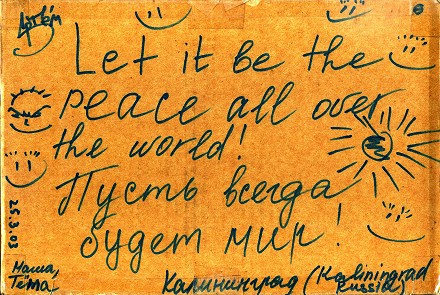 Артём
Let it be the
peace all over
the world!
Пусть всегда
будет мир!
25.3.03
Маша,
Тёма.
Калининград (Kaliningrad
Russia)